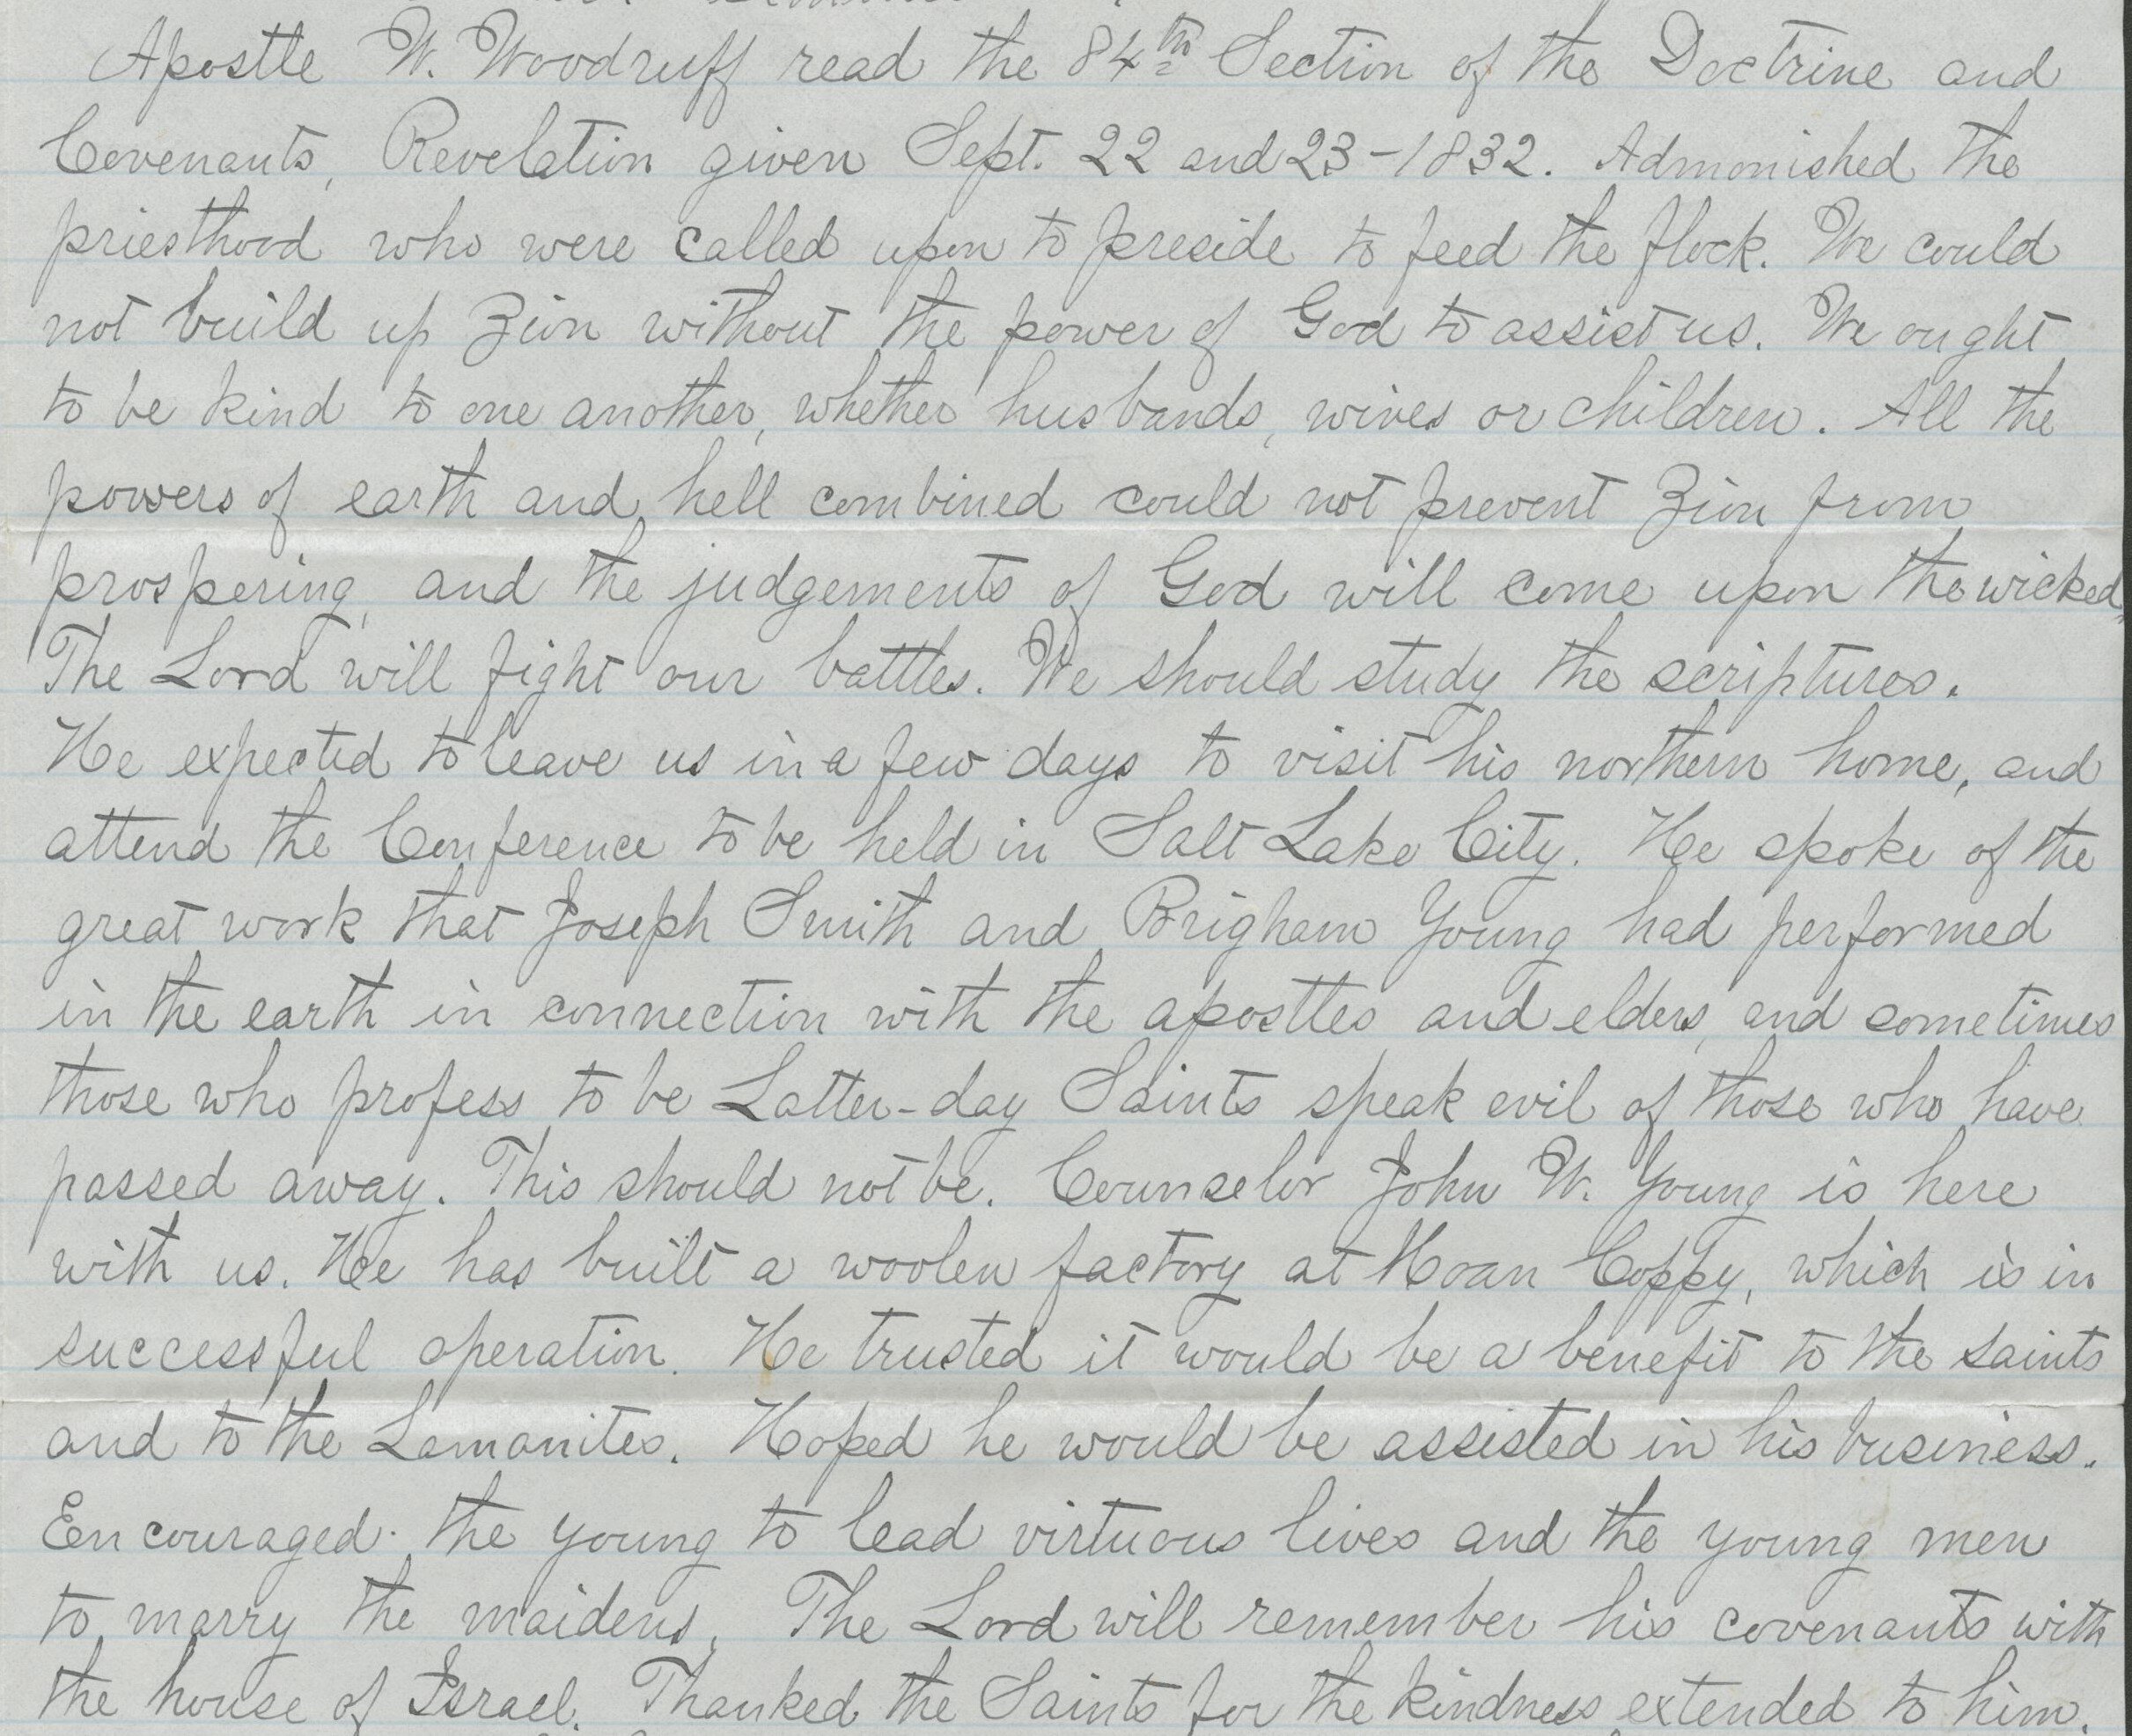 Apostle W. Woodruff read the 84th Section of the Doctrine and
Covenants, Revelation given Sept. 22 and 23-1832. Admonished the
priesthood who were called upon to preside to feed the flock. We could
not build up Zion without the power of God to assist us. We ought
to be kind to one another, whether husbands, wives or children. All the
powers of earth and hell combined could not prevent Zion from
prospering, and the judgements of God will come upon the wicked.
The Lord will fight our battles. We should study the scriptures.
He expected to leave us in a few days to visit his northern home, and
attend the Conference to be held in Salt Lake City. He spoke of the
great work that Joseph Smith and Brigham Young had performed
in the earth in connection with the apostles and elders, and sometimes
those who profess to be Latter-day Saints speak evil of those who have
passed away. This should not be. Counselor John W. Young is here
with us. He has built a woolen factory at Moan Coppy, which is in
successful operation. He trusted it would be a benefit to the saints
and to the Lamanites. Hoped he would be assisted in his business.
Encouraged the young to lead virtuous lives and the young men
to marry the maidens. The Lord will remember his covenants with
the house of Israel. Thanked the Saints for the kindness extended to him.